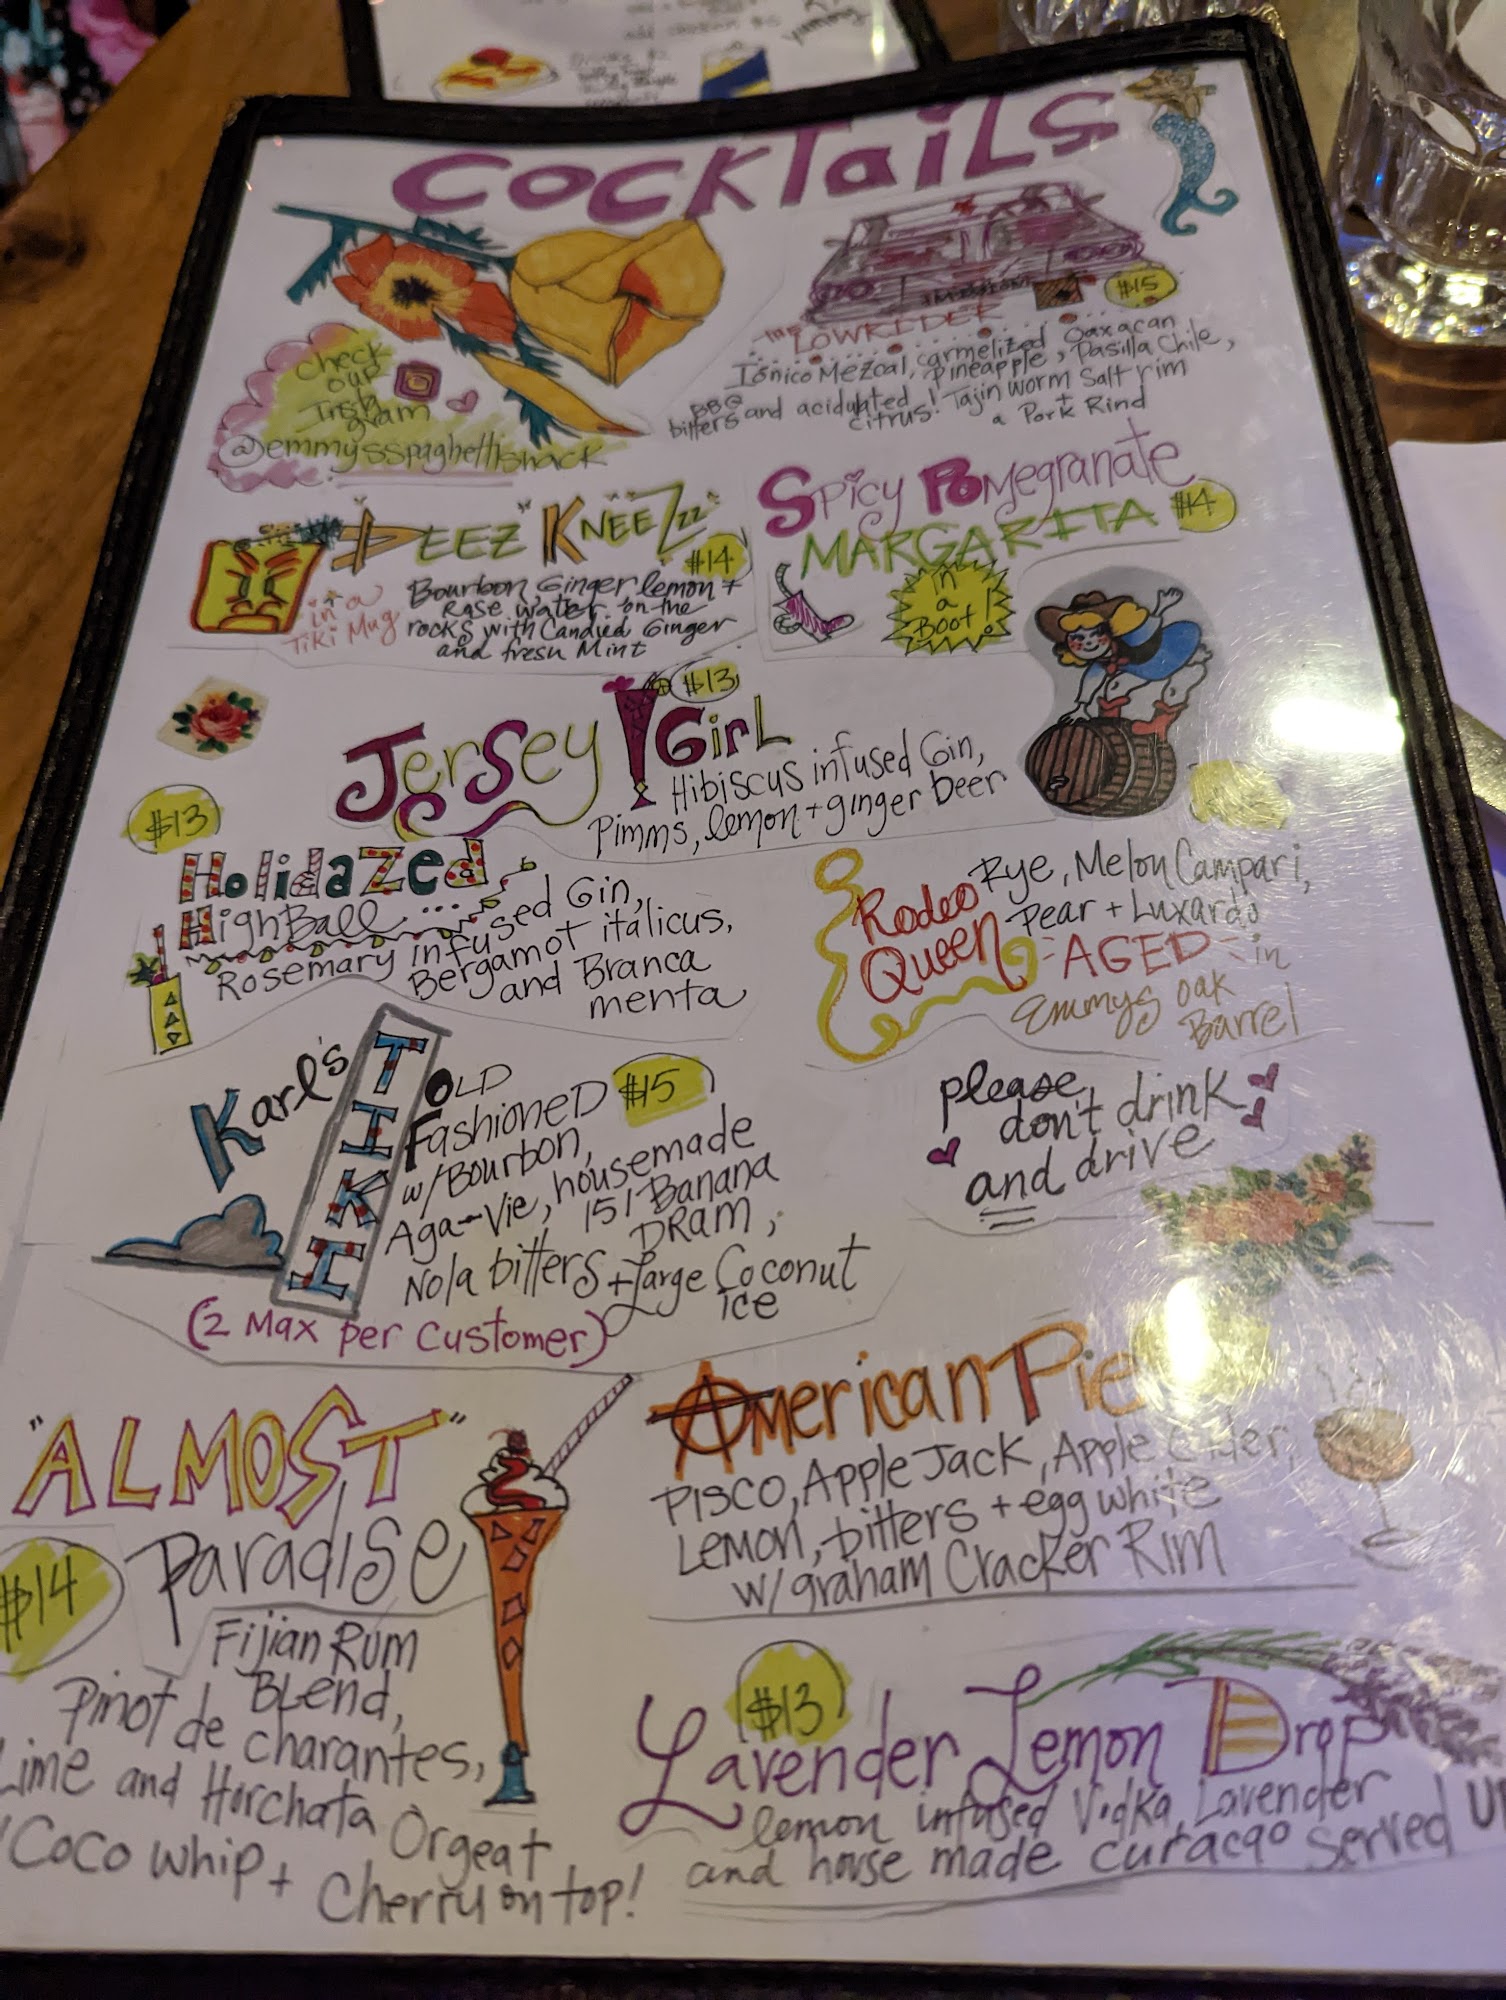 Cocktails
$15
the LOWRIDER
Iónico Mezcal, carmelized Oaxacan
pineapple, Pasilla Chile,
BBQ bitters and acidulated citrus! Tajin worm Salt rim
+ a Pork Rind
Check
out
Insta
gram
@emmysspaghettishack
"DEEZ" KNEEZzz
$14
in a
Tiki Mug
Bourbon Ginger lemon +
Rose water on the
rocks with Candied Ginger
and fresh Mint
Spicy Pomegranate
MARGARITA $14
in
a
Boot!
$13
Jersey Girl
Hibiscus infused Gin,
Pimms, lemon + ginger beer
$13
Holidazed
HighBall...
Rosemary infused Gin,
Bergamot italicus,
and Branca
menta
Rodeo
Queen
Rye, Melon Campari,
Pear + Luxardo
-AGED- in
Emmys oak
Barrel
Karl's
TIKI
OLD
Fashioned $15
w/Bourbon,
Aga-Vie, housemade
151 Banana
DRAM,
Nola bitters + Large Coconut
ice
(2 Max per Customer)
please
don't drink
and drive
"ALMOST"
Paradise
$14
Fijian Rum
Blend,
Pinot de charantes,
Lime and Horchata
Orgeat
Coco whip +
Cherry on top!
American Pie
PISCO, Apple Jack, Apple Cider,
Lemon, bitters + egg white
w/graham Cracker Rim
$13
Lavender Lemon Drop
lemon infused Vodka, Lavender
and house made curacao served UP